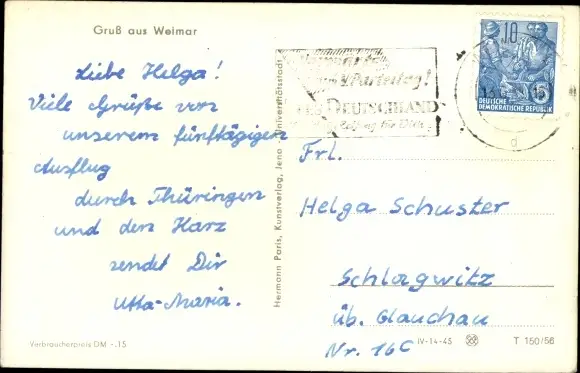 Gruß aus Weimar
Liebe Helga!
Viele Grüße von
unserem fünftägigen
Ausflug
durch Thüringen
und den Harz
sendet Dir
Utta-Maria.
Verbraucherpreis DM -.15
Hermann Paris, Kunstverlag, Jena - Universitätsstadt
V. Parteitag!
DEUTSCHLAND
für Dich
10
DEUTSCHE
DEMOKRATISCHE REPUBLIK
15
d
Frl.
Helga Schuster
Schlagwitz
üb. Glauchau
Nr. 16c
IV-14-45
T 150/56